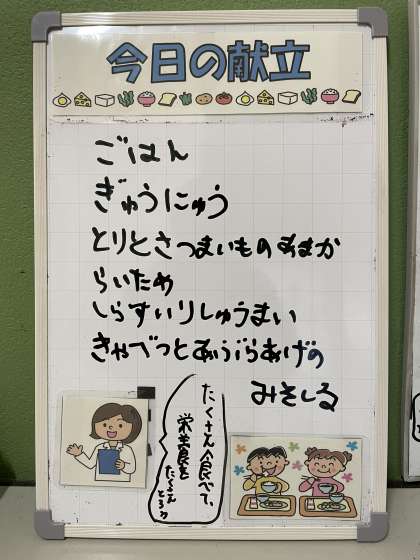 今日の献立
ごはん
ぎゅうにゅう
とりとさつまいものあまか
らいため
しらすいりしゅうまい
きゃべつとあぶらあげの
みそしる
たくさん食べて、
栄養食を
たくさん
とろう